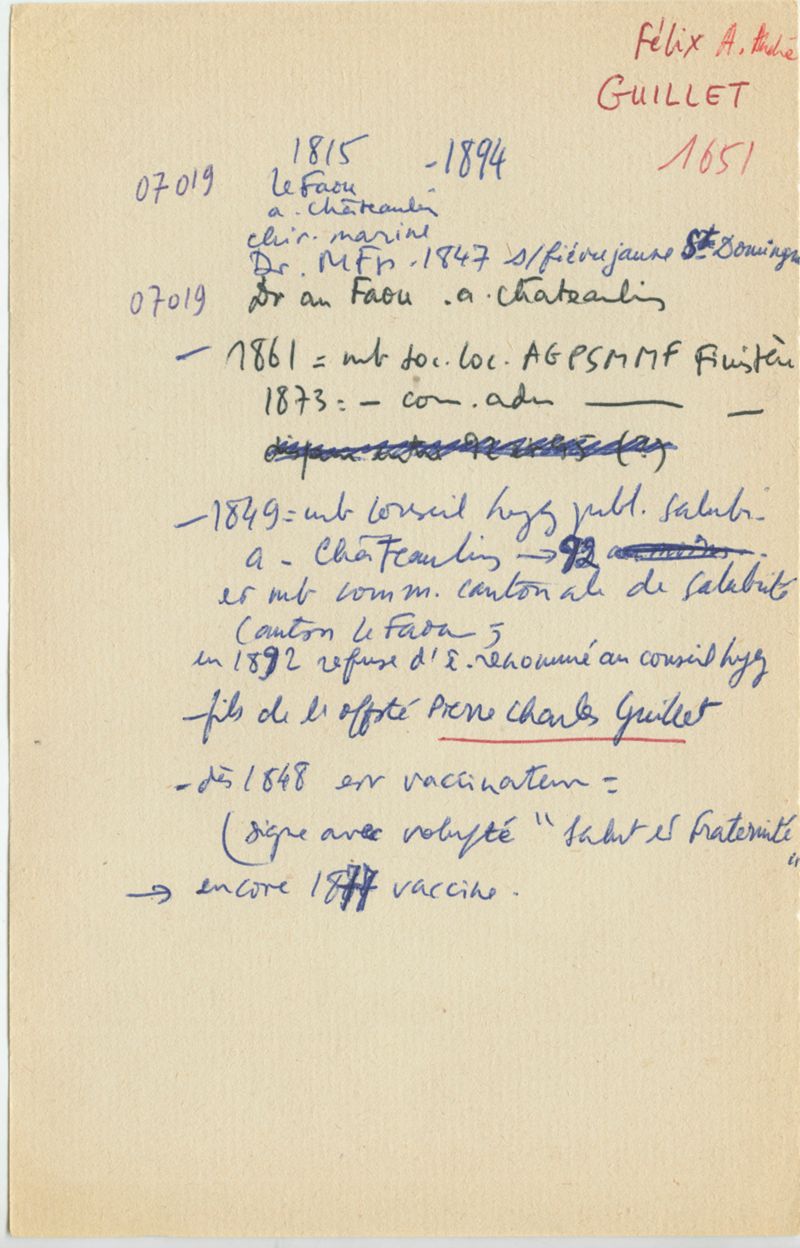 Félix A. André
GUILLET
1651
1815 - 1894
07019 le Faou
a. Châteaulin
chir. marine
Dr. MFP. 1847 s/fièvre jaune St Domingue
07019 Dr au Faou . a. Chateaulin
- 1861 = mb soc. loc. AGPSMMF Finistère
1873 = - com. adm — -
- 1849 = mb conseil hyg publ. salubr.
a - Châteaulin → 92
et mb comm. cantonale de salubrité
Canton le Faou ;
en 1892 refuse d'ê. renommé au conseil hyg
- fils de l' offsté Pierre Charles Guillet
- dès 1848 est vaccinateur =
(signe avec volupté " Salut et Fraternité
"
→ encore 1877 vaccine .